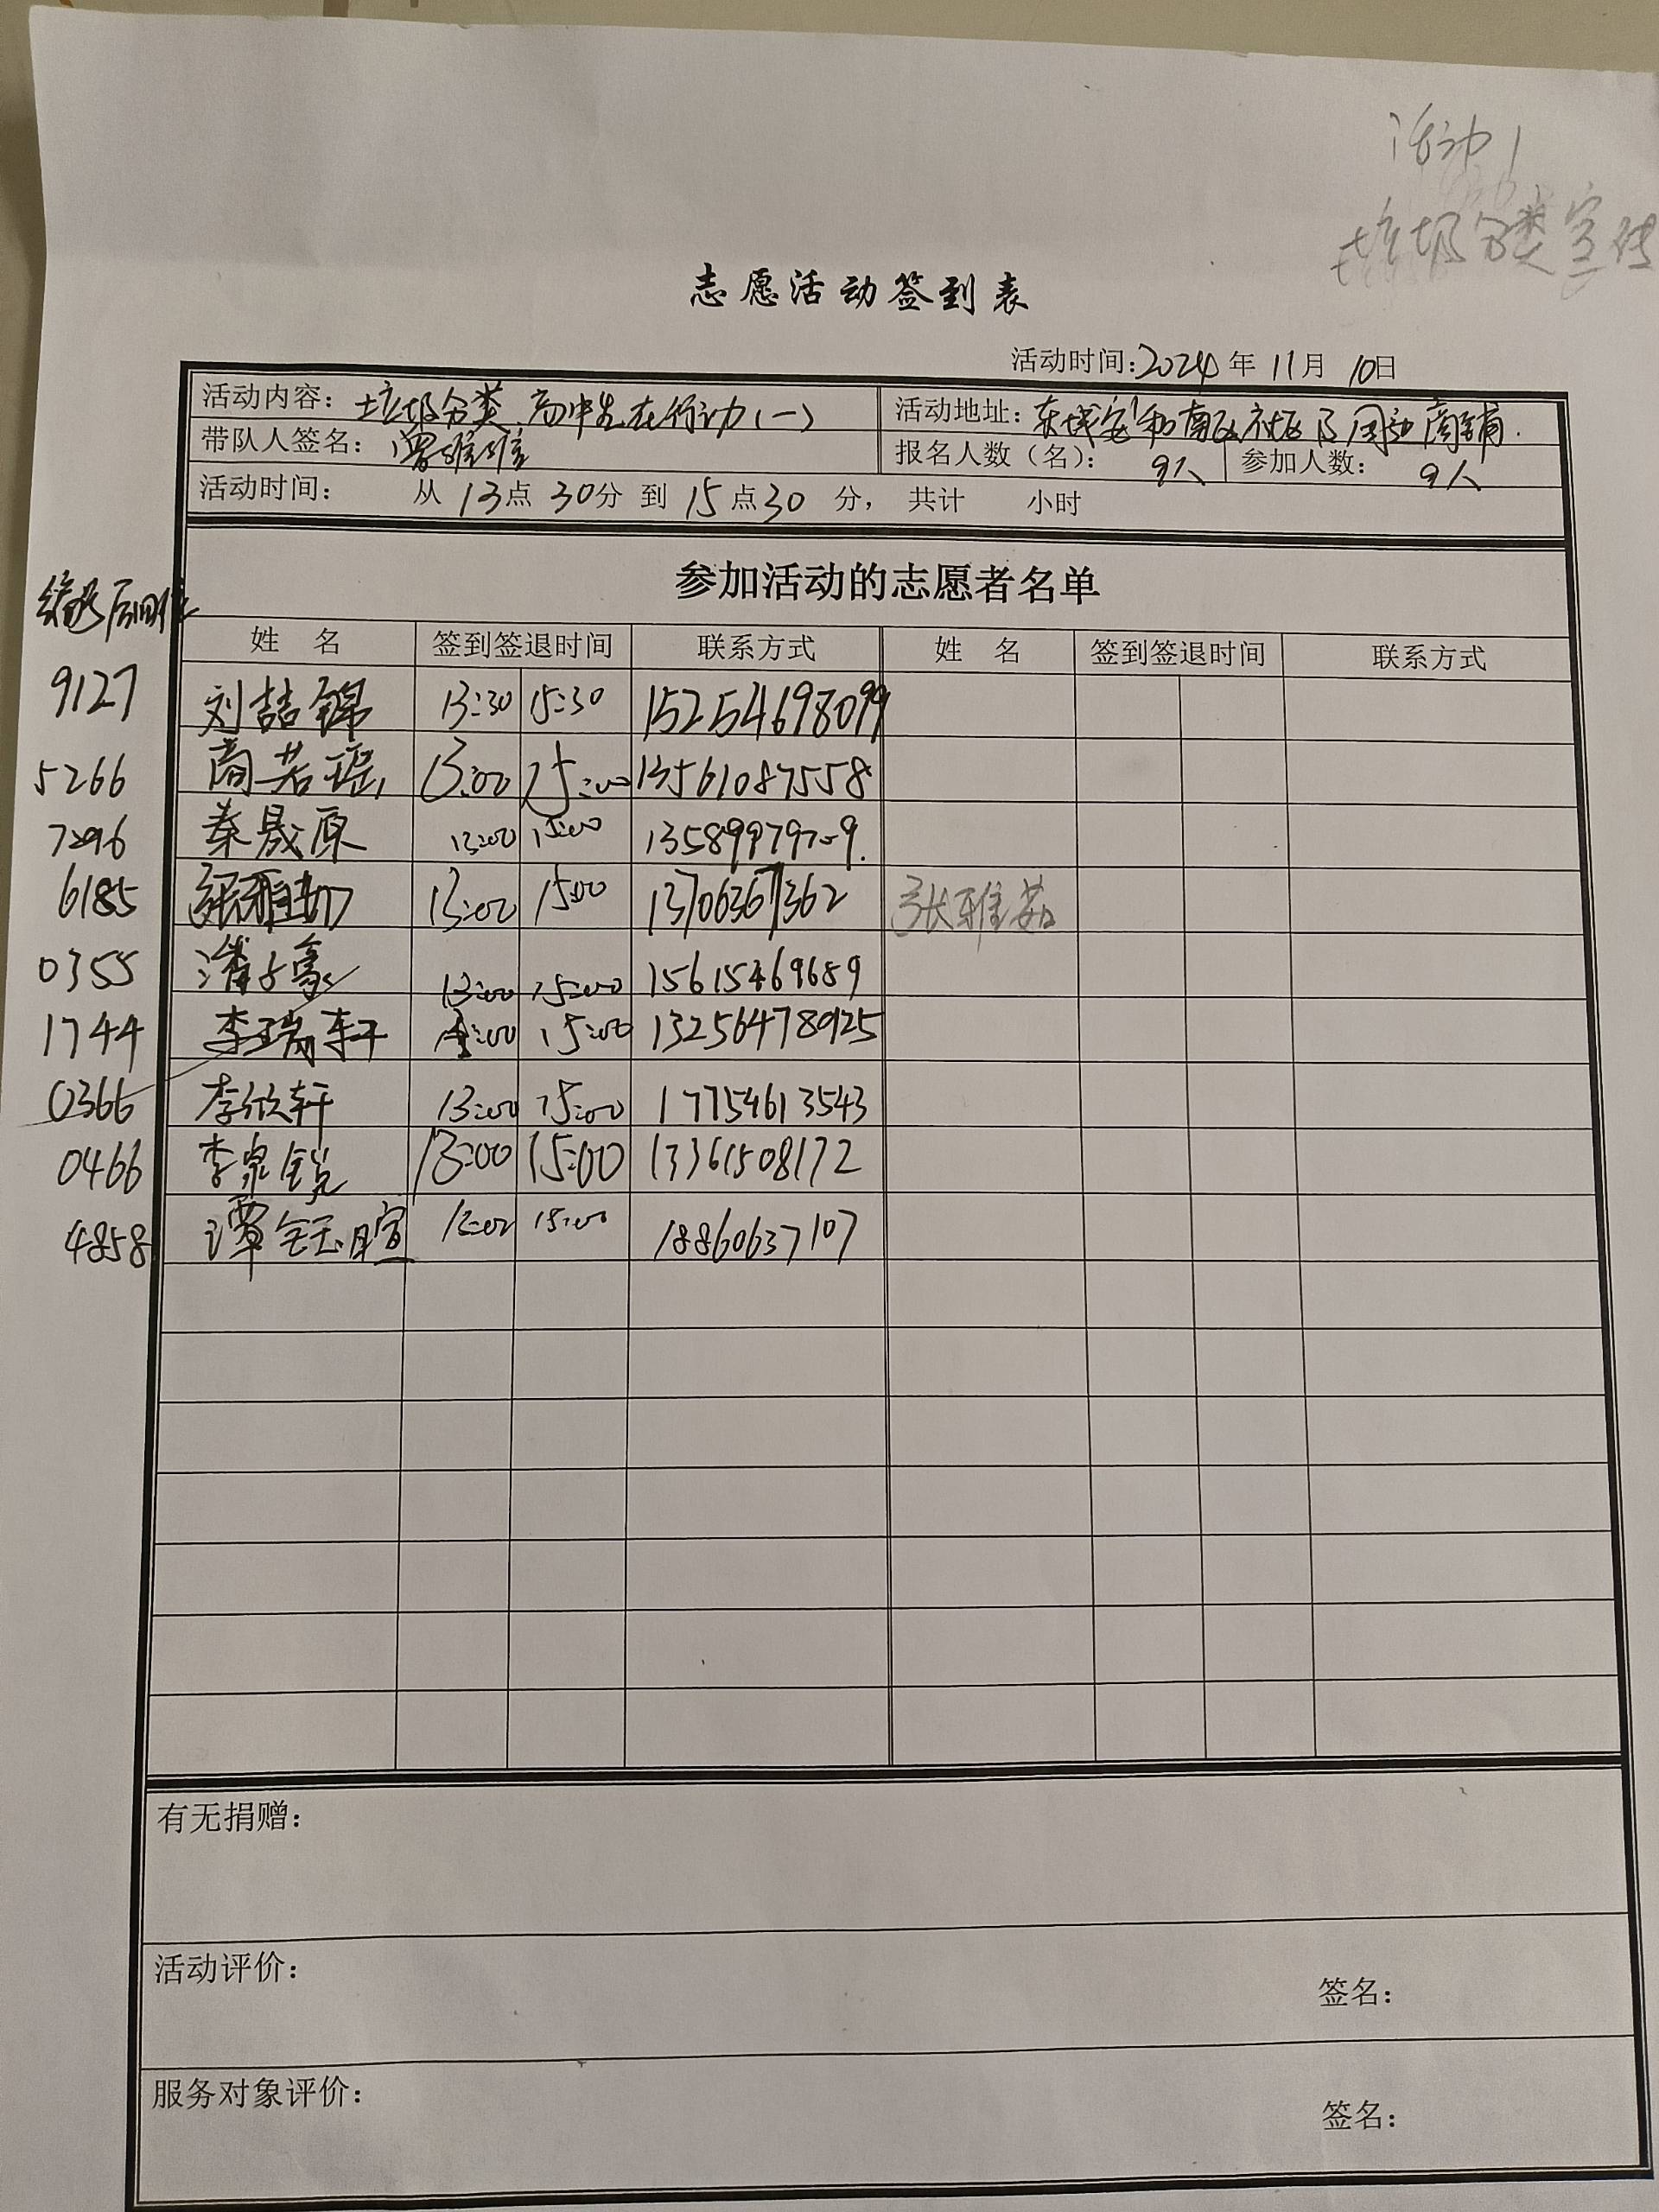 活动1
垃圾分类宣传
志愿活动签到表
活动时间:2024年11月10日
活动内容: 垃圾分类,高中生在行动(一) 活动地址: 东城安和南区社区及周边商铺.
带队人签名: 报名人数(名): 9人 参加人数: 9人
活动时间: 从13点30分到15点30分, 共计 小时
参加活动的志愿者名单
编号后四位
姓 名 签到签退时间 联系方式 姓 名 签到签退时间 联系方式
9127 刘喆锦 13:30 15:30 15254698099
5266 商若瑶 13:00 15:00 13561087558
7296 秦晟原 13:00 15:00
6185 张雅茹 13:00 15:00 13706367362 张雅茹
0355 潘子豪 13:00 15:00 15615469689
1744 李瑞轩 15:00 13256478925
0366 李欣轩 13:00 15:00 17754613543
0466 李泉锐 13:00 15:00 13361508172
4858 谭钰暄 13:00 15:00 18860637107
有无捐赠:
活动评价:
签名:
服务对象评价:
签名: